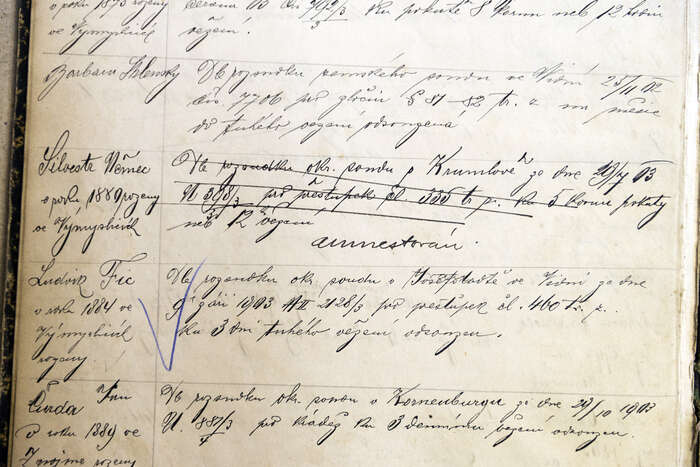 o roku 1873 rozený
ve Výmyslicích
ku pokutě 5 korun neb 12 hodin
vězení.
Barbara
Dle rozsudku zemského soudu ve Vídni 25/11 02
čís 7706 pro zločin § 81–82 tr. z. na měsíc
do tuhého vězení odsouzena
Silvestr Němec
o roku 1889 rozený
ve Výmyslicích
Dle rozsudku okr. soudu o Krumlově ze dne 29/7 03
U 398/3 pro přestupek čl. 335 tr. z. ku 5 korun pokuty
neb 12 vězení
amnestován.
Ludvík Fic
o roku 1884 ve
Výmyslicích
rozený
Dle rozsudku okr. soudu o Josefstadtě ve Vídni ze dne
9 září 1903 U II 2128/3 pro přestupek čl. 460 tr. z.
ku 3 dní tuhého vězení odsouzen.
Čurda Jan
o roku 1889 ve
Znojmě rozený
Dle rozsudku okr. soudu o Korneuburgu ze dne 29/10 1903
U. 887/3 pro krádež ku 3 dennímu vězení odsouzen.